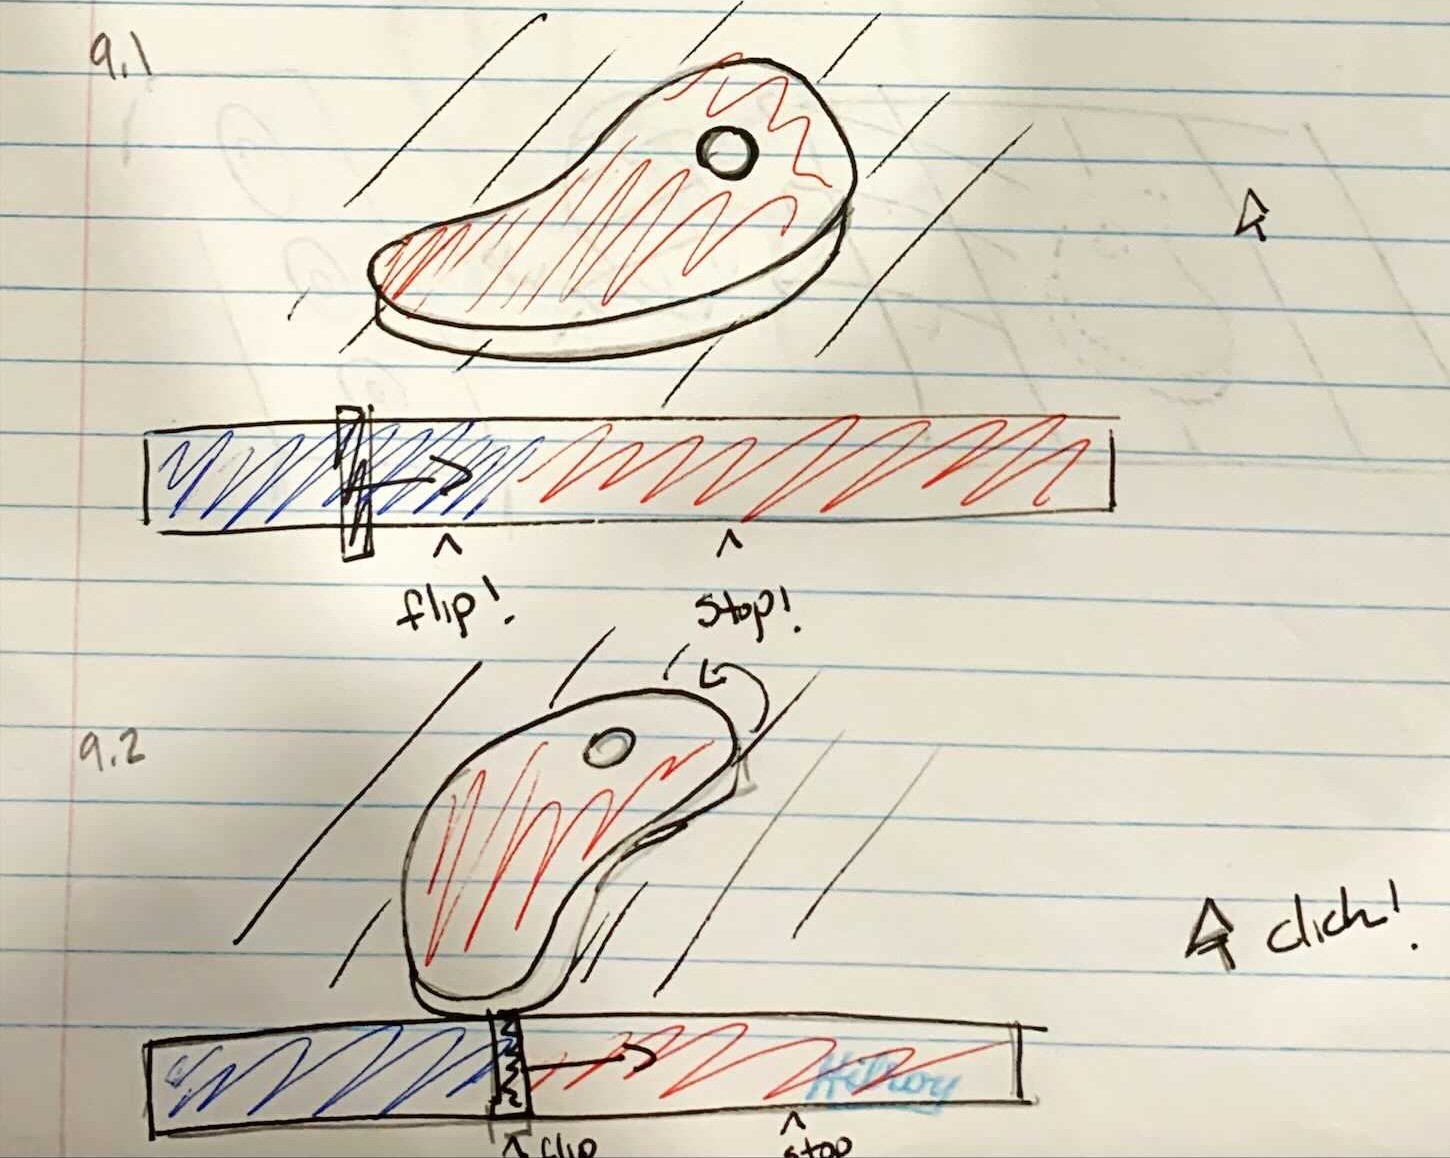 9.1
flip! stop!
9.2
click!
Hilroy
flip stop